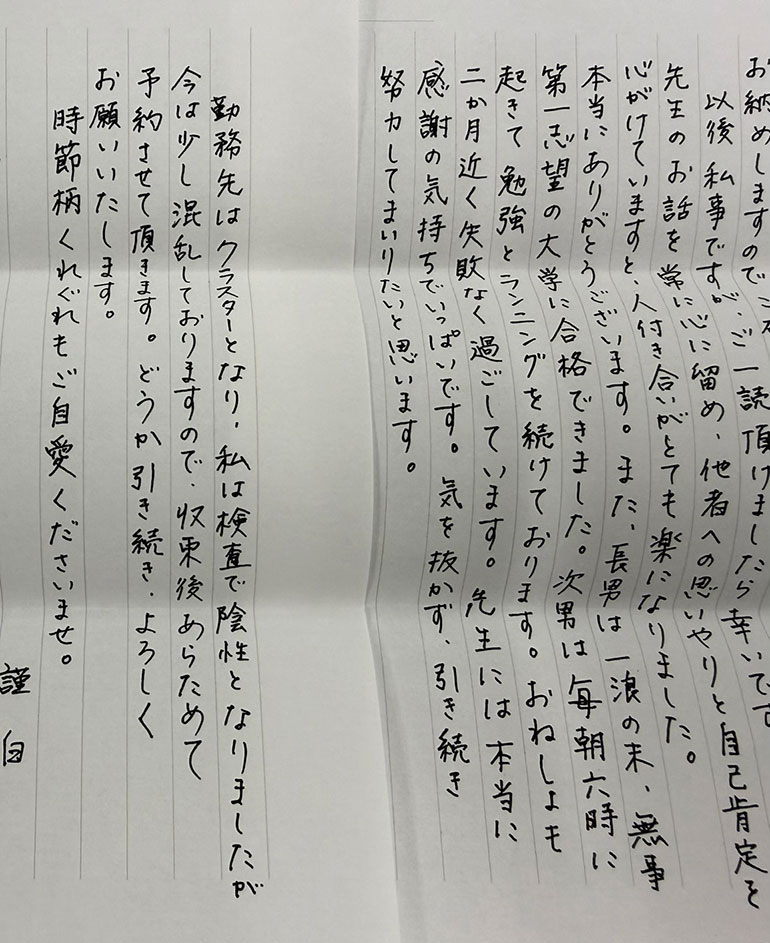 お納めしますので
以後私事ですが、ご一読頂けましたら幸いです
先生のお話を常に心に留め、他者への思いやりと自己肯定を
心がけていますと、人付き合いがとても楽になりました。
本当にありがとうございます。また、長男は一浪の末、無事
第一志望の大学に合格できました。次男は毎朝六時に
起きて勉強とランニングを続けております。おねしょも
二か月近く失敗なく過ごしています。先生には本当に
感謝の気持ちでいっぱいです。気を抜かず、引き続き
努力してまいりたいと思います。
勤務先はクラスターとなり、私は検査で陰性となりましたが
今は少し混乱しておりますので、収束後あらためて
予約させて頂きます。どうか引き続き、よろしく
お願いいたします。
時節柄くれぐれもご自愛くださいませ。
謹白